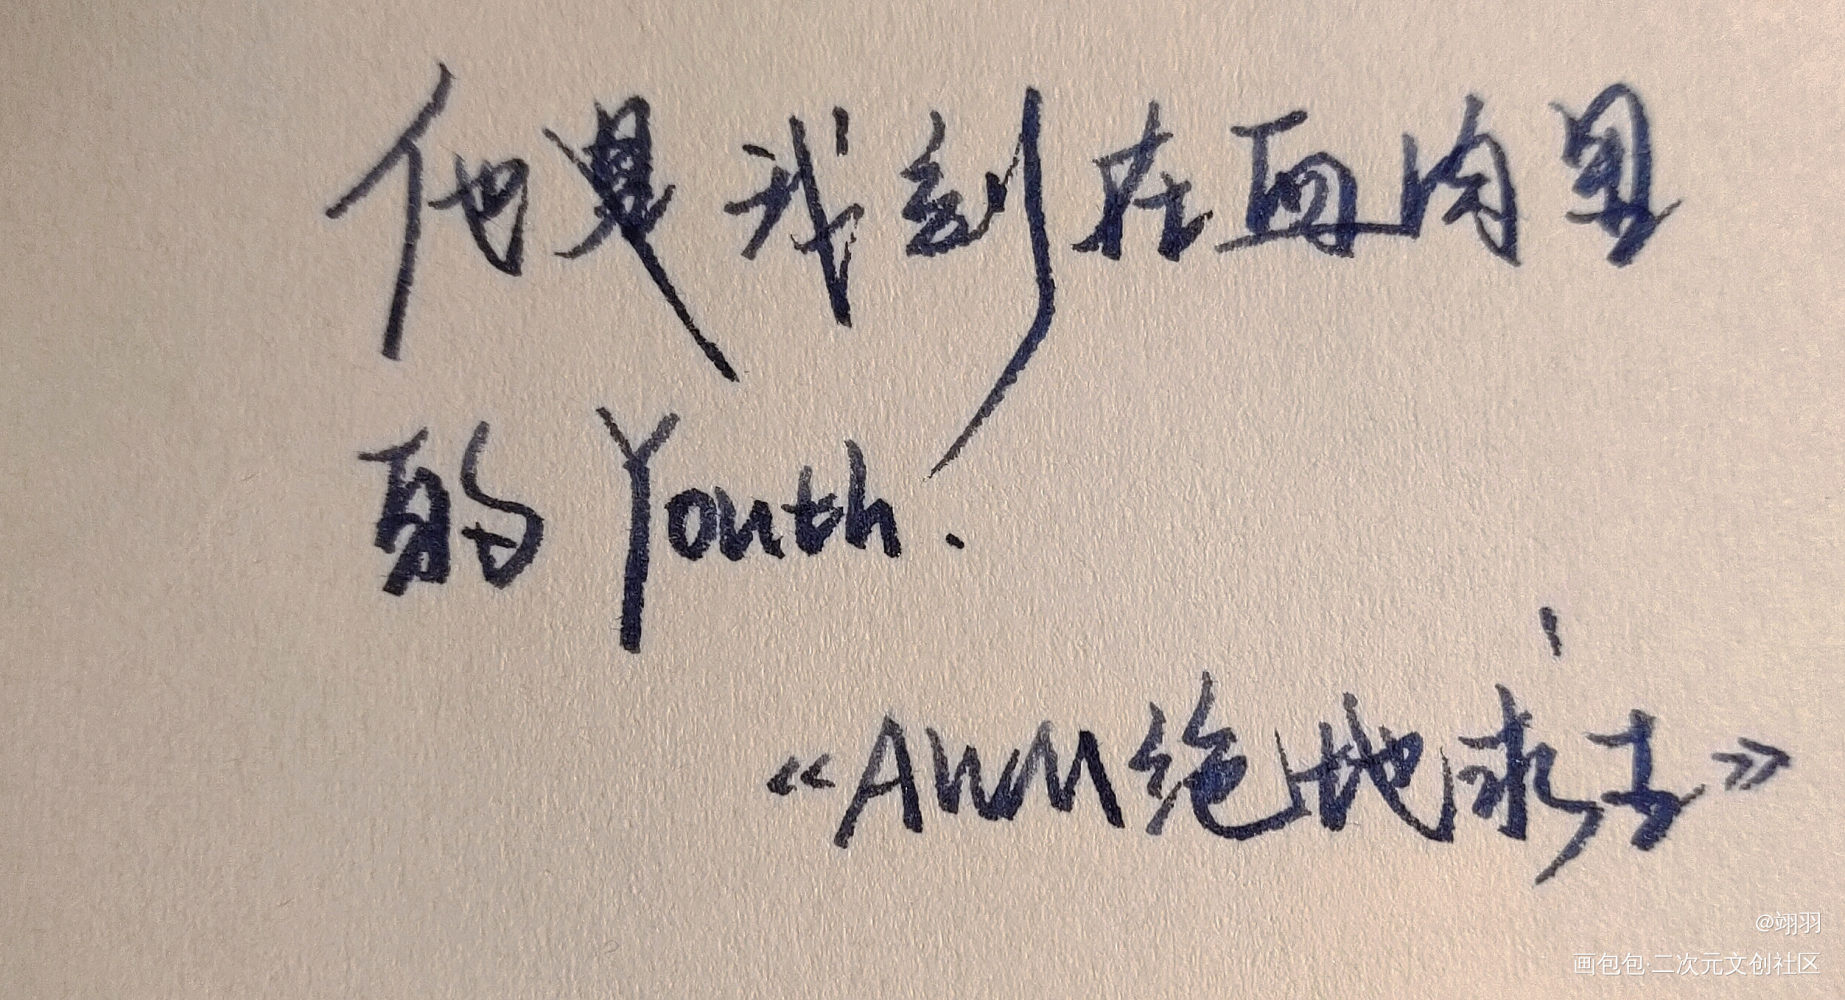 他是我刻在血肉里
的 Youth.
《AWM绝地求生》
@翊羽
画包包·二次元文创社区